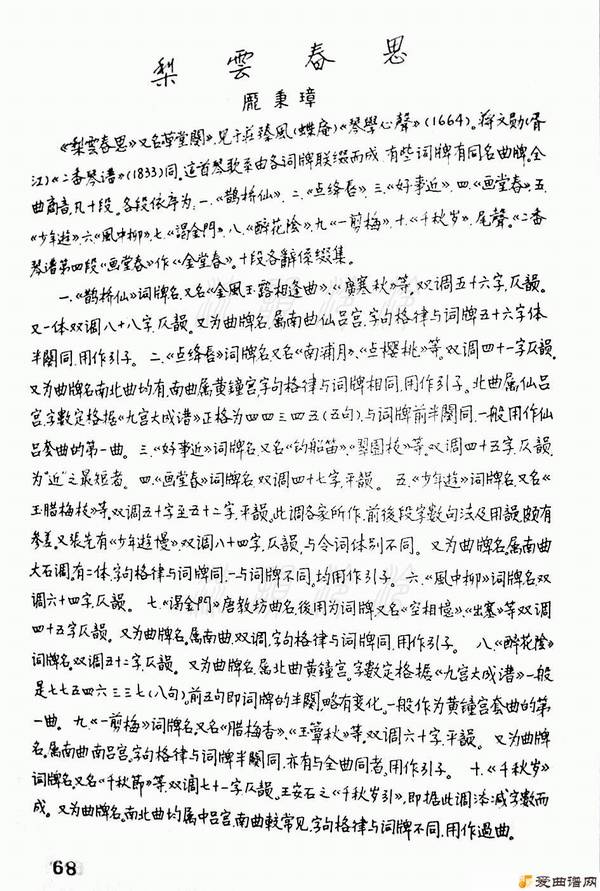 梨雲春思
龐秉璋
《梨雲春思》又名《草堂閣》,见于莊臻凰(蝶庵)《琴學心聲》(1664)。蒋文勋(胥
江)《二香琴谱》(1833)同。这首琴歌系由各词牌联缀而成,有些词牌有同名曲牌。全
曲商音,凡十段。各段依序为:一.《鹊桥仙》、二.《点绛唇》、三.《好事近》、四.《画堂春》、五.
《少年遊》、六.《風中柳》、七.《謁金門》、八.《醉花陰》、九.《一剪梅》、十.《千秋岁》、尾聲。《二香
琴谱》第四段《画堂春》作《金堂春》。十段各辭係缀集。
一.《鹊桥仙》词牌名,又名《金風玉露相逢曲》、《廣寒秋》等。双调五十六字,仄韻。
又一体双调八十八字,仄韻。又为曲牌名,属南曲仙吕宫,字句格律与词牌五十六字体
半闋同,用作引子。 二.《点绛唇》词牌名,又名《南浦月》、《点樱桃》等。双调四十一字仄韻。
又为曲牌名,南北曲均有,南曲属黄鐘宫,字句格律与词牌相同,用作引子。北曲属仙吕
宫,字数定格据《九宫大成谱》正格为四四三四五(五句),与词牌前半闋同,一般用作仙
吕套曲的第一曲。 三.《好事近》词牌名,又名《钓船笛》、《翠園枝》等。双调四十五字,仄韻,
为"近"之最短者。 四.《画堂春》词牌名,双调四十七字,平韻。 五.《少年遊》词牌名,又名《
玉腊梅枝》等,双调五十字至五十二字,平韻。此调各家所作,前後段字数句法及用韻,頗有
参差。又張先有《少年遊慢》,双调八十四字,仄韻,与令词体别不同。 又为曲牌名,属南曲
大石调,有二体,字句格律与词牌同,一与词牌不同,均用作引子。 六.《風中柳》词牌名,双
调六十四字,仄韻。 七.《謁金門》唐教坊曲名,後用为词牌,又名《空相憶》、《出塞》等双调
四十五字仄韻。 又为曲牌名,属南曲,双调,字句格律与词牌同,用作引子。 八.《醉花陰》
词牌名,双调五十二字,仄韻。 又为曲牌名,属北曲黄鐘宫,字数定格据《九宫大成谱》一般
是七七五四六三三七(八句),前五句即词牌的半闋,略有变化。一般作为黄鐘宫套曲的第
一曲。 九.《一剪梅》词牌名,又名《腊梅香》、《玉簟秋》等,双调六十字,平韻。 又为曲牌
名,属南曲南吕宫,字句格律与词牌半闋同,亦有与全曲同者,用作引子。 十.《千秋岁》
词牌名,又名《千秋節》等,双调七十一字,仄韻。王安石之《千秋岁引》,即据此调添减字数而
成。 又为曲牌名,南北曲均属中吕宫,南曲較常见,字句格律与词牌不同,用作過曲。
68
爱曲谱网